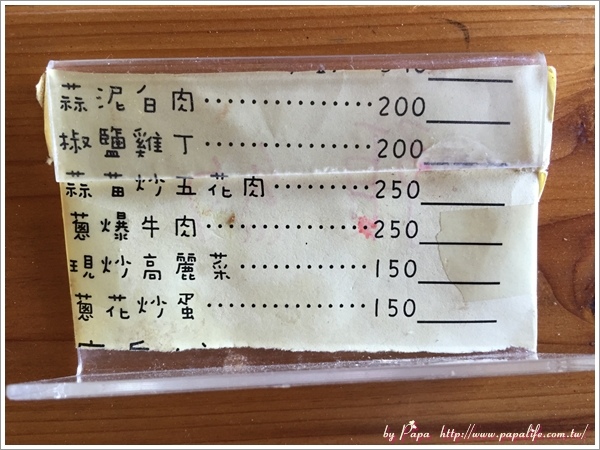 蒜泥白肉‧‧‧‧‧‧‧‧‧‧‧‧‧‧‧‧‧200______
椒鹽雞丁‧‧‧‧‧‧‧‧‧‧‧‧‧‧‧‧‧200______
蒜苗炒五花肉‧‧‧‧‧‧‧‧‧‧250______
蔥爆牛肉‧‧‧‧‧‧‧‧‧‧‧‧‧‧‧‧250______
現炒高麗菜‧‧‧‧‧‧‧‧‧‧‧‧‧150______
蔥花炒蛋‧‧‧‧‧‧‧‧‧‧‧‧‧‧‧‧150______
by Papa http://www.papalife.com.tw/